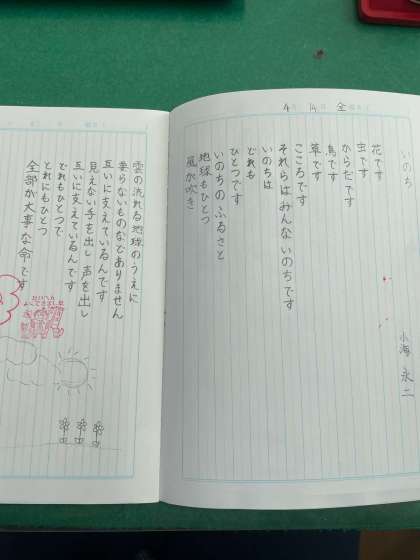 4月14日金
いのち
小海永二
花です
虫です
からだです
鳥です
草です
こころです
それらはみんないのちです
いのちは
どれも
ひとつです
いのちのふるさと
地球もひとつ
風が吹き
雲の流れる地球のうえに
要らないものなどありません
互いに支えているんです
見えない手を出し声を出し
互いに支えているんです
どれもひとつで
どれにもひとつ
全部が大事な命です
たいへん
よくできました